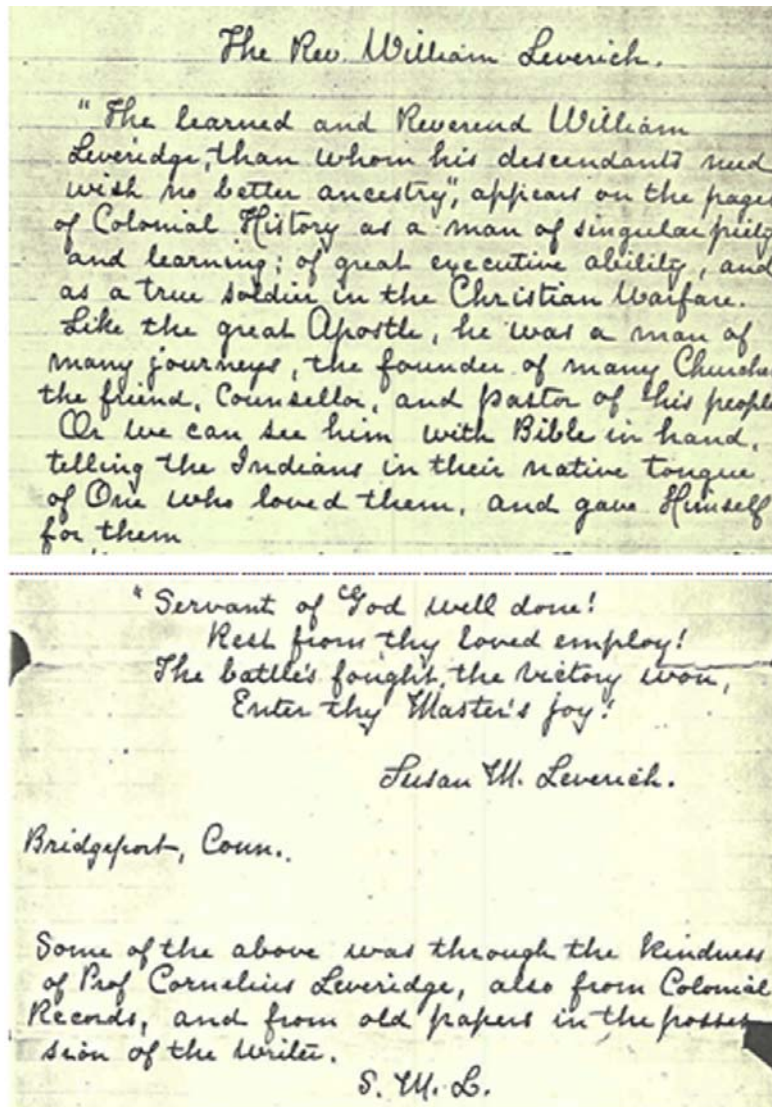 The Rev. William Leverich.
"The learned and Reverend William
Leveridge, than whom his descendants need
wish no better ancestry", appears on the pages
of Colonial History as a man of singular piety
and learning; of great executive ability, and
as a true soldier in the Christian Warfare.
Like the great Apostle, he was a man of
many journeys, the founder of many Churches
the friend, Counsellor, and pastor of his people
Or we can see him with Bible in hand,
telling the Indians in their native tongue
of One who loved them, and gave Himself
for them
"Servant of God well done!
Rest from thy loved employ!
The battle's fought, the victory won,
Enter thy Master's joy!
Susan M. Leverich.
Bridgeport, Conn.
Some of the above was through the kindness
of Prof Cornelius Leveridge, also from Colonial
Records, and from old papers in the posses
sion of the writer.
S. M. L.